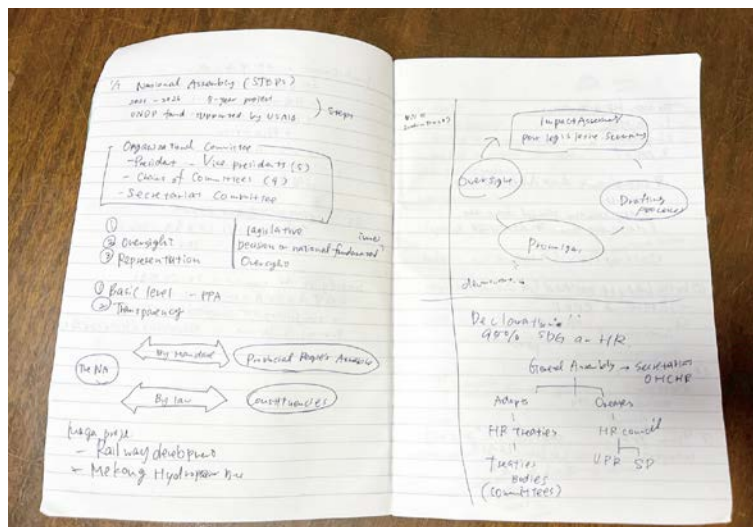 National Assembly (STEPs)
2022 - 2026 5-year project
UNDP fund supported by USAID
Steps
Organizational Committee
- President - Vice presidents (5)
- Chairs of Committees (9)
- Secretariat Committee
①
② Oversight
③ Representation
Legislative
Decision on national fundamental issues
Oversight
① Basic level - PPA
② Transparency
The NA
By mandate
Provincial People Assembly
By law
Constituencies
- Railway development
- Mekong Hydropower
Impact Assessment
post legislative scrutiny
Oversight
Drafting process
Promulgat
Declaration
90% SDG on HR
General Assembly → Secretariat
OHCHR
Adopts
Creates
HR treaties
HR council
Treaties
Bodies
(Committees)
UPR SP